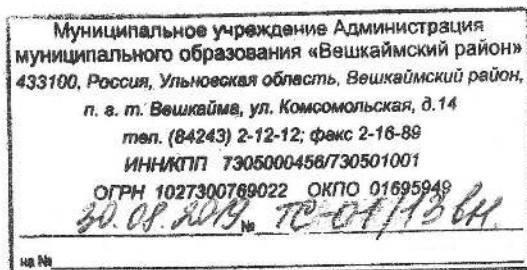 Муниципальное учреждение Администрация
муниципального образования «Вешкаймский район»
433100, Россия, Ульновская область, Вешкаймский район,
п. г. т. Вешкайма, ул. Комсомольская, д.14
тел. (84243) 2-12-12; факс 2-16-89
ИНН/КПП 7305000456/730501001
ОГРН 1027300769022 ОКПО 01695949
30.08.2019 № ТС-01/13 вн.
на №